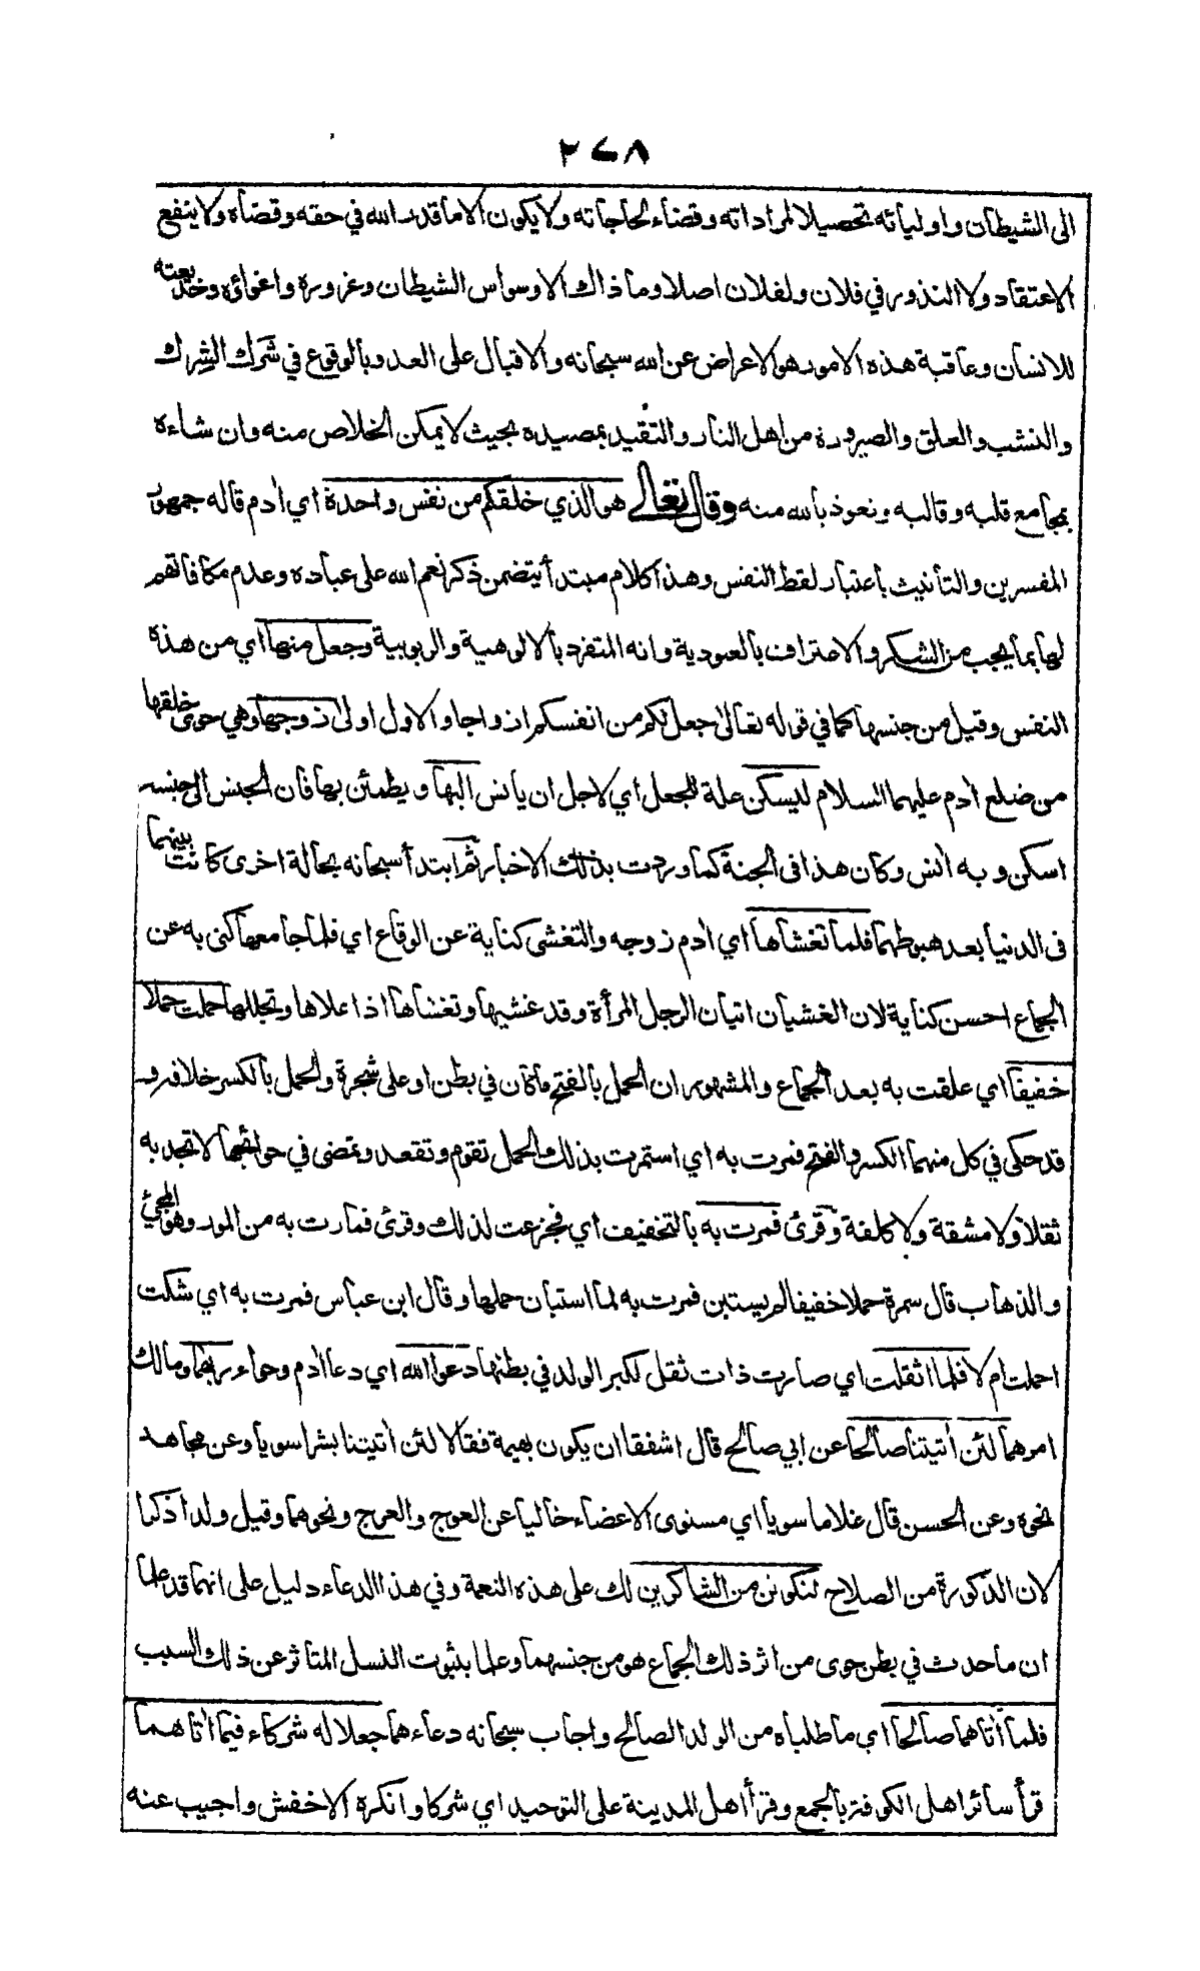 ٢٦٨
الى الشيطان واوليائه تحصيلا لمراداته وقضاء لحاجاته ولا يكون الا ما قدر الله في حقه وقضاه ولا ينفع
الاعتقاد ولا النذور في فلان ولفلان اصلا وما ذاك الا وسواس الشيطان وغروره واغواؤه وخديعته
للانسان وعاقبة هذه الامور هو الاعراض عن الله سبحانه والاقبال على العدو بالوقوع في شَرَك الشِرك
والنشب والعلق والصيرورة من اهل النار والتقيد بمصيده بحيث لا يمكن الخلاص منه وان شاءه
بمجامع قلبه وقالبه ونعوذ بالله منه وقال تعالى هو الذي خلقكم من نفس واحدة اي اٰدم قاله جمهور
المفسرين والتأنيث باعتبار لفظ النفس وهذا كلام مبتدأ يتضمن ذكر نعم الله على عباده وعدم مكافاتهم
لها بما يجب من الشكر والاعتراف بالعبودية وانه المتفرد بالالوهية والربوبية وجعل منها اي من هذه
النفس وقيل من جنسها كما في قوله تعالى جعل لكم من انفسكم ازواجا والاول اولى زوجها وهي حوى خلقها
من ضلع اٰدم عليهما السلام ليسكن علة للجعل اي لاجل ان يانس اليها ويطمئن بها فان الجنس الى جنسه
اسكن وبه اٰنس وكان هذا في الجنة كما وردت بذلك الاخبار ثم ابتدأ سبحانه بحالة اخرى كانت بينهما
في الدنيا بعد هبوطهما فلما تغشاها اي اٰدم زوجه والتغشى كناية عن الوقاع اي فلما جامعها كنى به عن
الجماع احسن كناية لان الغشيان اتيان الرجل المرأة وقد غشيها وتغشاها اذا علاها وتجللها حملت حملا
خفيفا اي علقت به بعد الجماع والمشهور ان الحمل بالفتح ما كان في بطن او على شجرة والحمل بالكسر خلافه و
قد حكى في كل منهما الكسر والفتح فمرت به اي استمرت بذلك الحمل تقوم وتقعد وتمضى في حوائجها لا تجد به
ثقلا ولا مشقة ولا كلفة وقرئ فمرت به بالتخفيف اي فجزعت لذلك وقرئ فمارت به من المور وهو المجئ
والذهاب قال سمرة حملا خفيفا لم يستبن فمرت به لما استبان حملها وقال ابن عباس فمرت به اي شكت
احملت ام لا فلما اثقلت اي صارت ذات ثقل لكبر الولد في بطنها دعوا الله اي دعا اٰدم وحواء ربهما ومالك
امرهما لئن اٰتيتنا صالحا عن ابي صالح قال اشفقا ان يكون بهيمة فقالا لئن اٰتيتنا بشرا سويا وعن مجاهد
نحوه وعن الحسن قال غلاما سويا اي مستوى الاعضاء خاليا عن العوج والعرج ونحوهما وقيل ولدا ذكرا
لان الذكورة من الصلاح لنكونن من الشاكرين لك على هذه النعمة وفي هذا الدعاء دليل على انهما قد علما
ان ما حدث في بطن حوى من اثر ذلك الجماع هو من جنسهما وعلما بثبوت النسل المتأثر عن ذلك السبب
فلما اٰتاهما صالحا اي ما طلباه من الولد الصالح واجاب سبحانه دعاءهما جعلا له شركاء فيما اٰتاهما
قرأ سائر اهل الكوفة بالجمع وقرأ اهل المدينة على التوحيد اي شركا وانكره الاخفش واجيب عنه